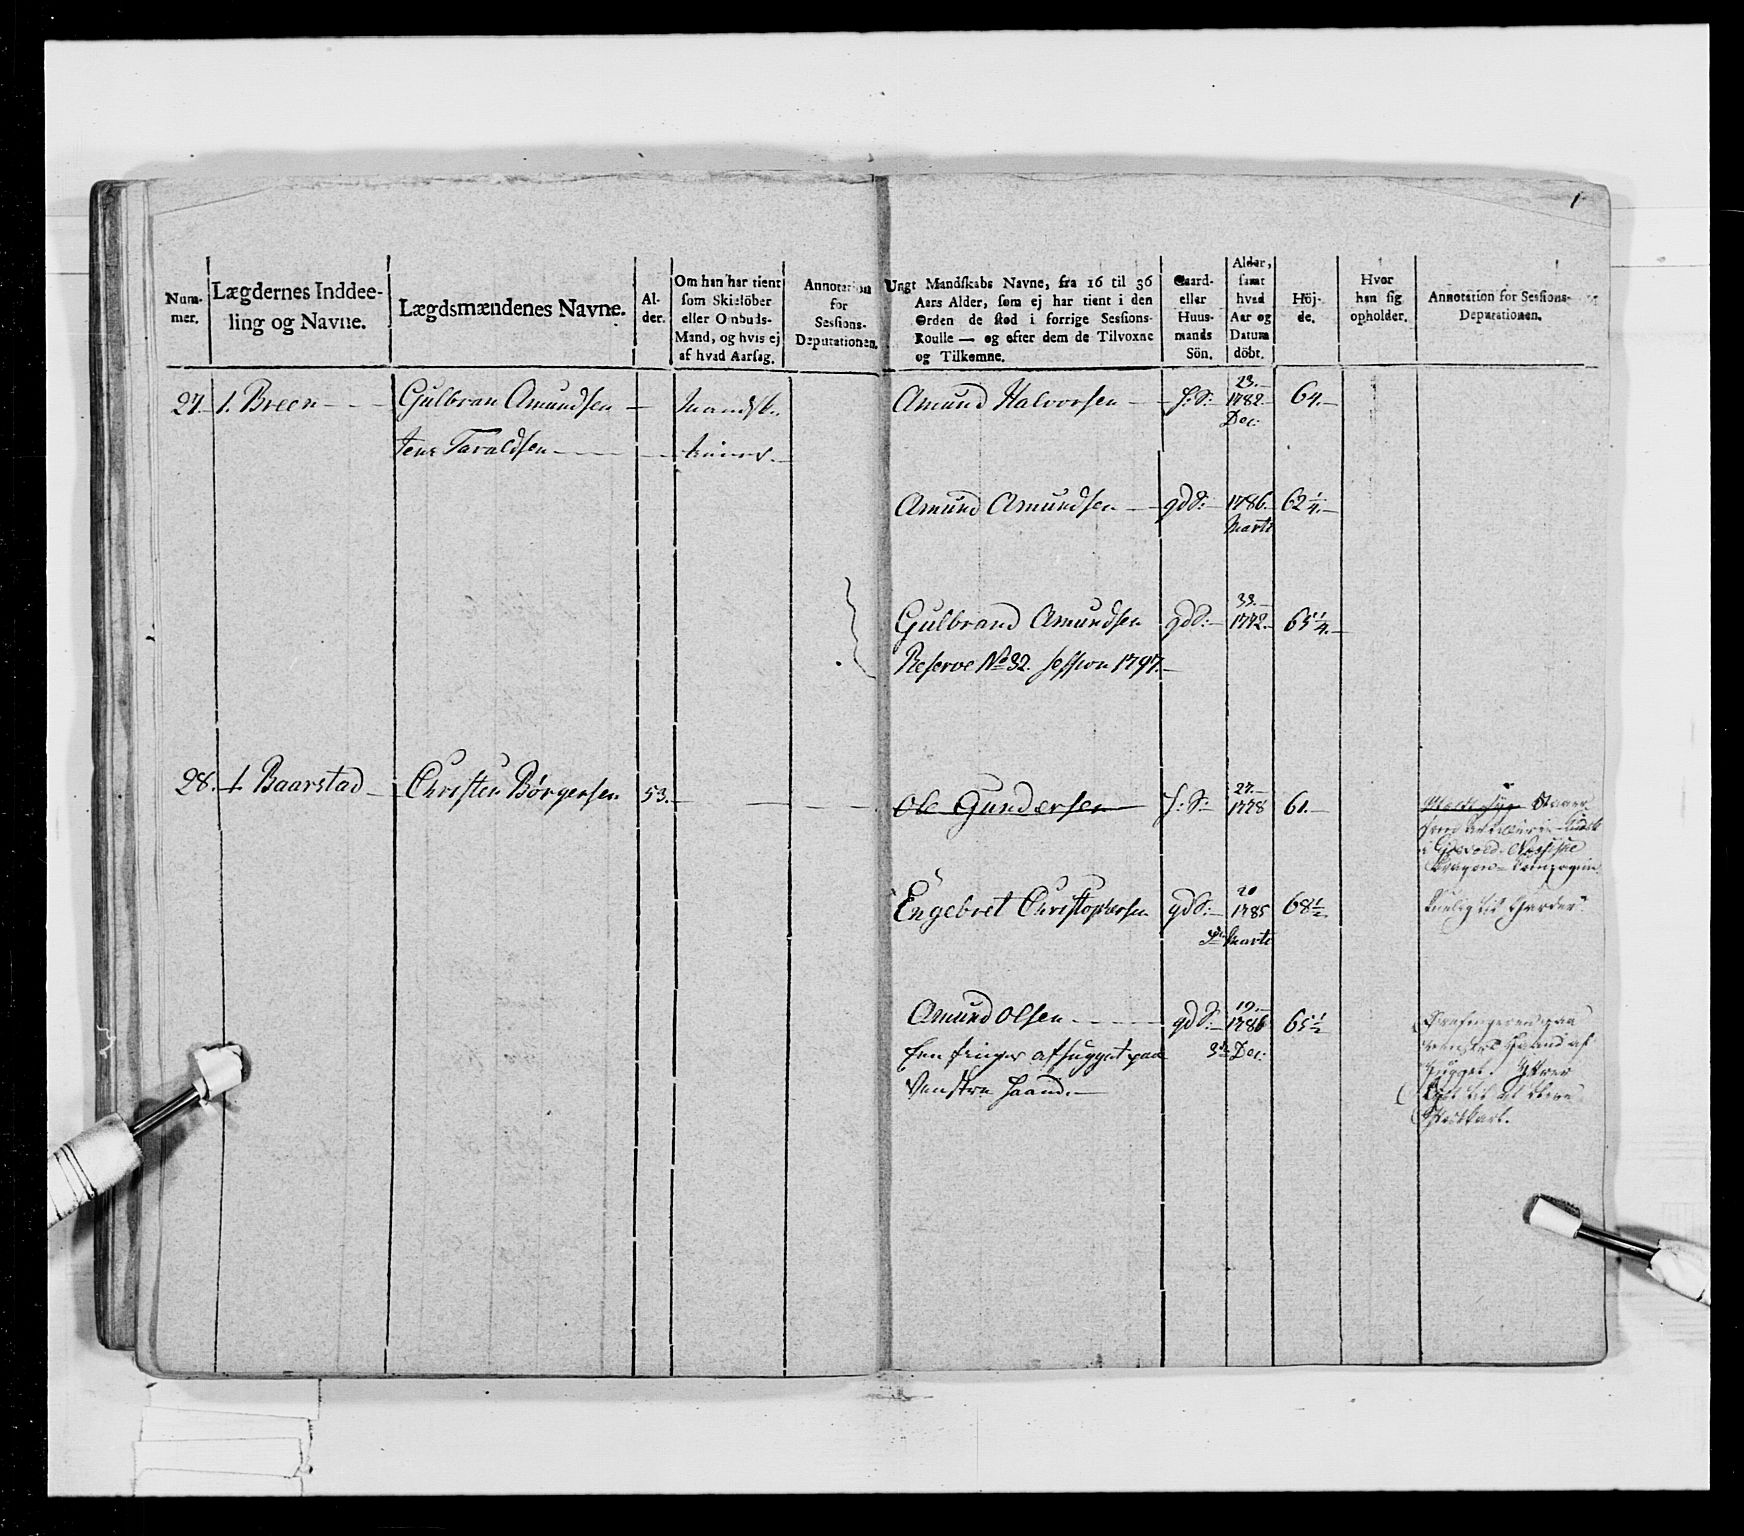 1
Num-
mer.
Lægdernes Inddee-
ling og Navne.
Lægdsmændenes Navne.
Al-
der.
Om han har tient
som Skieløber
eller Ombuds-
Mand, og hvis ej
af hvad Aarsag.
Annotation
for
Sessions-
Deputationen.
Ungt Mandskabs Navne, fra 16 til 36
Aars Alder, som ej har tient i den
Orden de stod i forrige Sessions-
Roulle — og efter dem de Tilvoxne
og Tilkomne.
Gaard-
eller
Huus-
mands
Sön.
Alder,
samt
hvad
Aar og
Datum
döbt.
Höj-
de.
Hvor
han sig
opholder.
Annotation for Sessions-
Deputationen.
27. 1. Breen — Gulbran Amundsen —
Jens Taraldsen —
Amund Halvorsen — 23. 1782. Dec: 64.
Amund Amundsen — gdS: 1786. Marti 62 1/4.
Gulbrand Amundsen gdS: 33. 1772. 65 1/4.
Reserve No 32. Session 1797.
28. 1. Baarstad — Christen Børgersen 53.
Ole Gundersen — 27. 1778 61.
Engebret Christophersen gdS: 20 1785 Marti 68 1/2.
Amund Olsen — gdS: 19. 1786 Dec: 65 1/2
Een finger afhugget paa
Venstre Haand. —